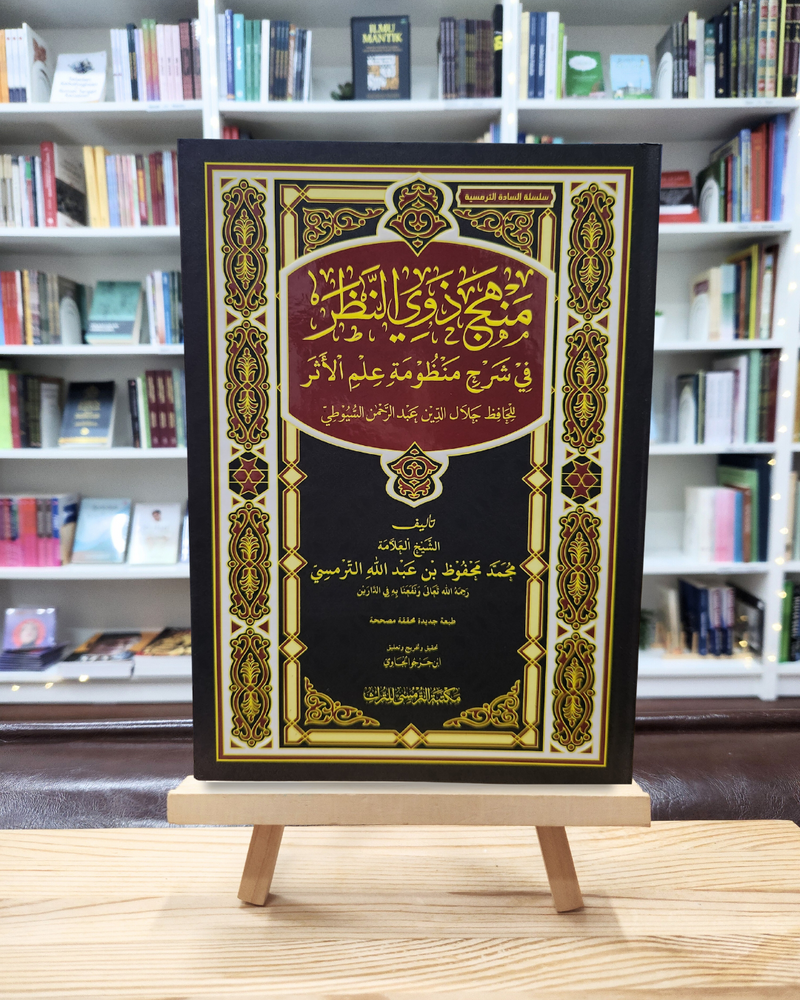 ILMU
MANTIK
سلسلة السادة الترمسية
مَنْهَجُ ذَوِي النَّظَرِ
فِي شَرْحِ مَنْظُوْمَةِ عِلْمِ الْأَثَرِ
لِلْحَافِظِ جَلَالِ الدِّيْنِ عَبْدِ الرَّحْمٰنِ السُّيُوْطِيِّ
تأليف
الشَّيْخِ الْعَلَّامَةِ
مُحَمَّد مَحْفُوْظ بْنِ عَبْدِ اللهِ التَّرْمَسِيّ
رَحِمَهُ الله تَعَالَى وَنَفَعَنَا بِهِ فِي الدَّارَيْنِ
طبعة جديدة محققة مصححة
تحقيق وتخريج وتعليق
ابن حرجو الجاوي
مكتبة الترمسي للتراث